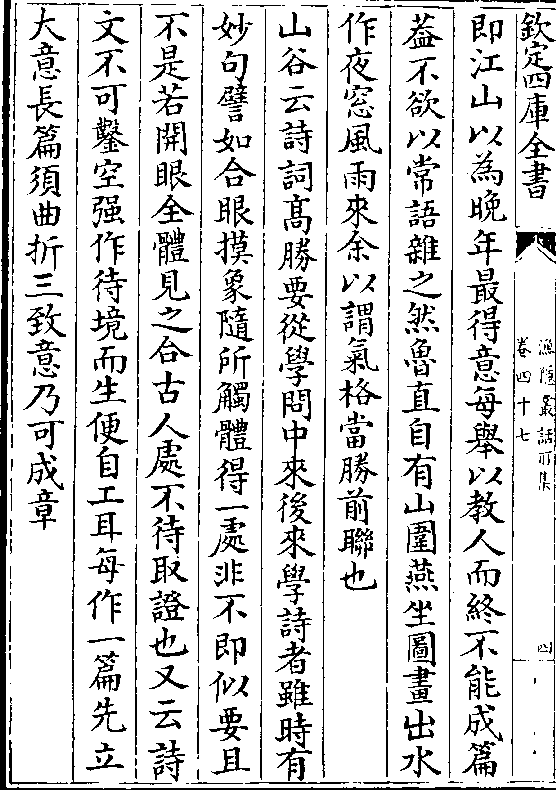 欽定四庫全書
漁隱叢話前集
卷四十七
四
即江山以為晚年最得意每舉以教人而終不能成篇
葢不欲以常語雜之然魯直自有山圍燕坐圖畫出水
作夜窓風雨來余以謂氣格當勝前聯也
山谷云詩詞髙勝要從學問中來後來學詩者雖時有
妙句譬如合眼摸象隨所觸體得一處非不即似要且
不是若開眼全體見之合古人處不待取證也又云詩
文不可鑿空强作待境而生便自工耳每作一篇先立
大意長篇須曲折三致意乃可成章